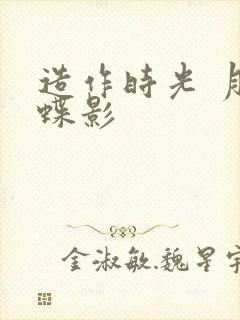 造作時光 月
蝶影
金淑敏.魏星宇